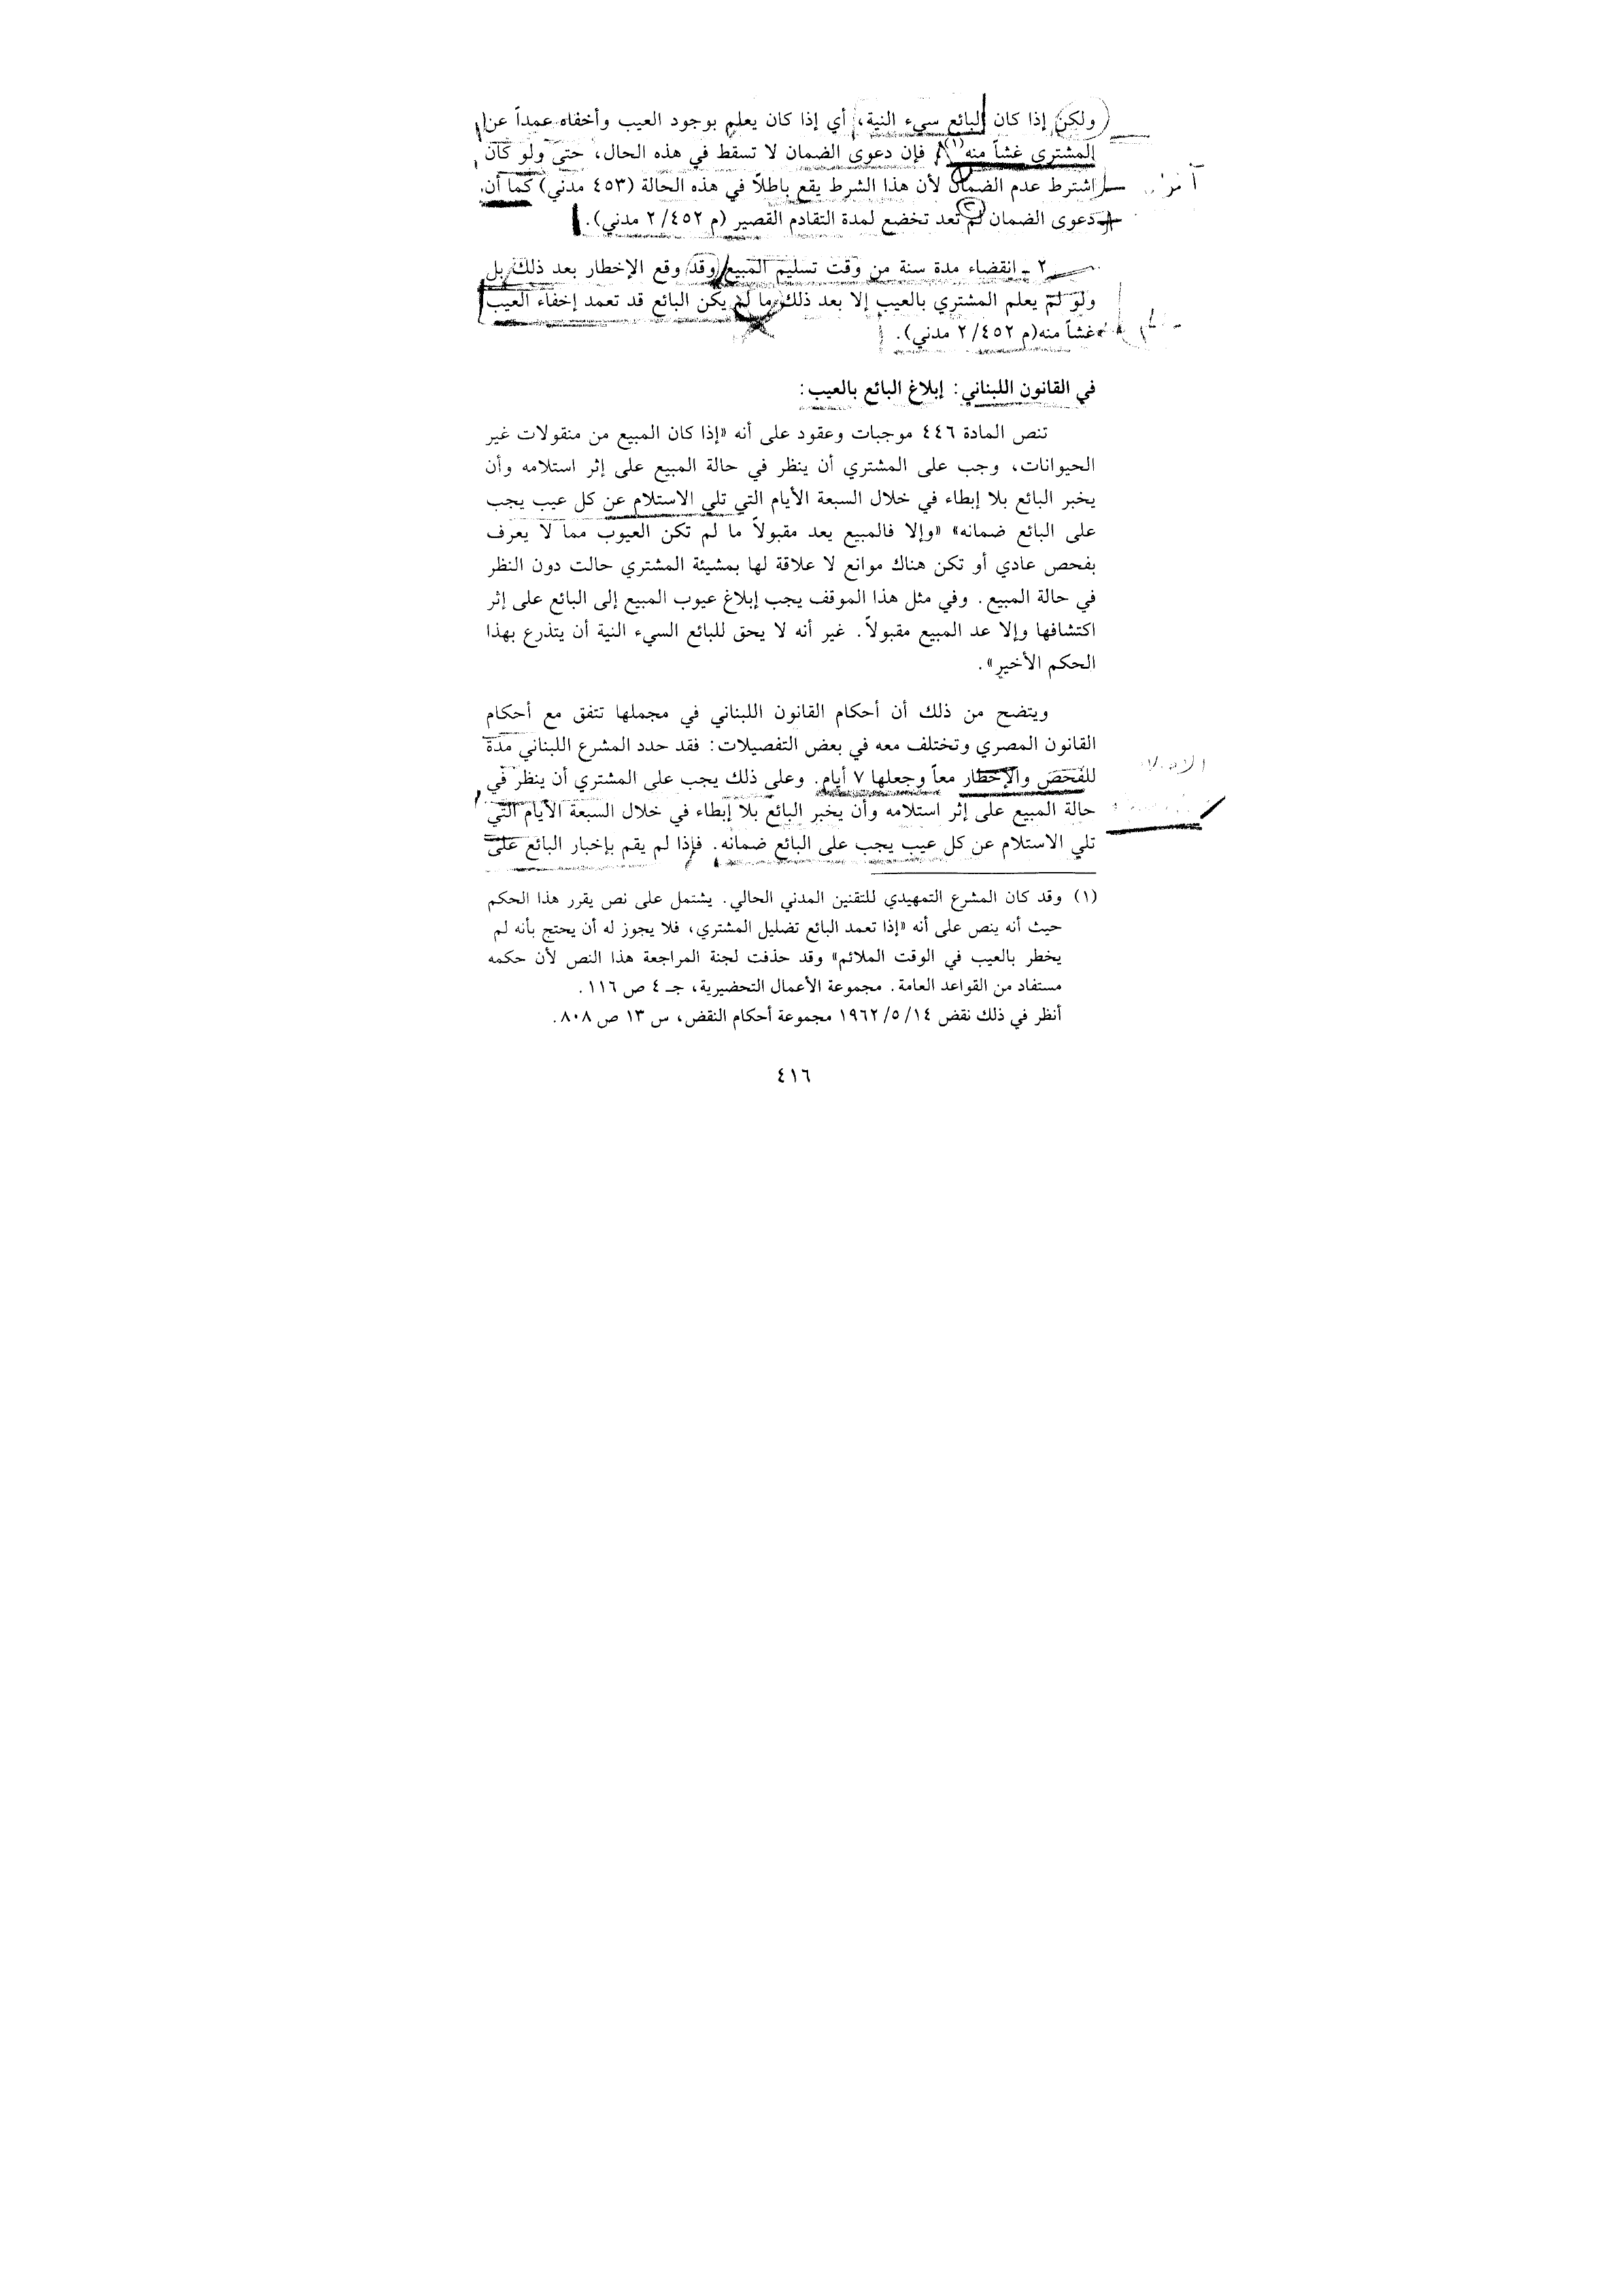 ولكن إذا كان البائع سيء النية، أي إذا كان يعلم بوجود العيب وأخفاه عمداً عن
المشتري غشاً منه(١) فإن دعوى الضمان لا تسقط في هذه الحال، حتى ولو كان
اشترط عدم الضمان لأن هذا الشرط يقع باطلاً في هذه الحالة (٤٥٣ مدني) كما أن
دعوى الضمان لم تعد تخضع لمدة التقادم القصير (م ٤٥٢/ ٢ مدني).
٢ - انقضاء مدة سنة من وقت تسليم المبيع وقد وقع الإخطار بعد ذلك بل
ولو لم يعلم المشتري بالعيب إلا بعد ذلك ما لم يكن البائع قد تعمد إخفاء العيب
غشاً منه(م ٤٥٢/ ٢ مدني).
في القانون اللبناني: إبلاغ البائع بالعيب:
تنص المادة ٤٤٦ موجبات وعقود على أنه «إذا كان المبيع من منقولات غير
الحيوانات، وجب على المشتري أن ينظر في حالة المبيع على إثر استلامه وأن
يخبر البائع بلا إبطاء في خلال السبعة الأيام التي تلي الاستلام عن كل عيب يجب
على البائع ضمانه» «وإلا فالمبيع يعد مقبولاً ما لم تكن العيوب مما لا يعرف
بفحص عادي أو تكن هناك موانع لا علاقة لها بمشيئة المشتري حالت دون النظر
في حالة المبيع. وفي مثل هذا الموقف يجب إبلاغ عيوب المبيع إلى البائع على إثر
اكتشافها وإلا عد المبيع مقبولاً. غير أنه لا يحق للبائع السيء النية أن يتذرع بهذا
الحكم الأخير».
ويتضح من ذلك أن أحكام القانون اللبناني في مجملها تتفق مع أحكام
القانون المصري وتختلف معه في بعض التفصيلات: فقد حدد المشرع اللبناني مدة
للفحص والإخطار معاً وجعلها ٧ أيام. وعلى ذلك يجب على المشتري أن ينظر في
حالة المبيع على إثر استلامه وأن يخبر البائع بلا إبطاء في خلال السبعة الأيام التي
تلي الاستلام عن كل عيب يجب على البائع ضمانه. فإذا لم يقم بإخبار البائع على
(١) وقد كان المشرع التمهيدي للتقنين المدني الحالي. يشتمل على نص يقرر هذا الحكم
حيث أنه ينص على أنه «إذا تعمد البائع تضليل المشتري، فلا يجوز له أن يحتج بأنه لم
يخطر بالعيب في الوقت الملائم» وقد حذفت لجنة المراجعة هذا النص لأن حكمه
مستفاد من القواعد العامة. مجموعة الأعمال التحضيرية، جـ ٤ ص ١١٦.
أنظر في ذلك نقض ١٤/ ٥/ ١٩٦٢ مجموعة أحكام النقض، س ١٣ ص ٨٠٨.
٤١٦